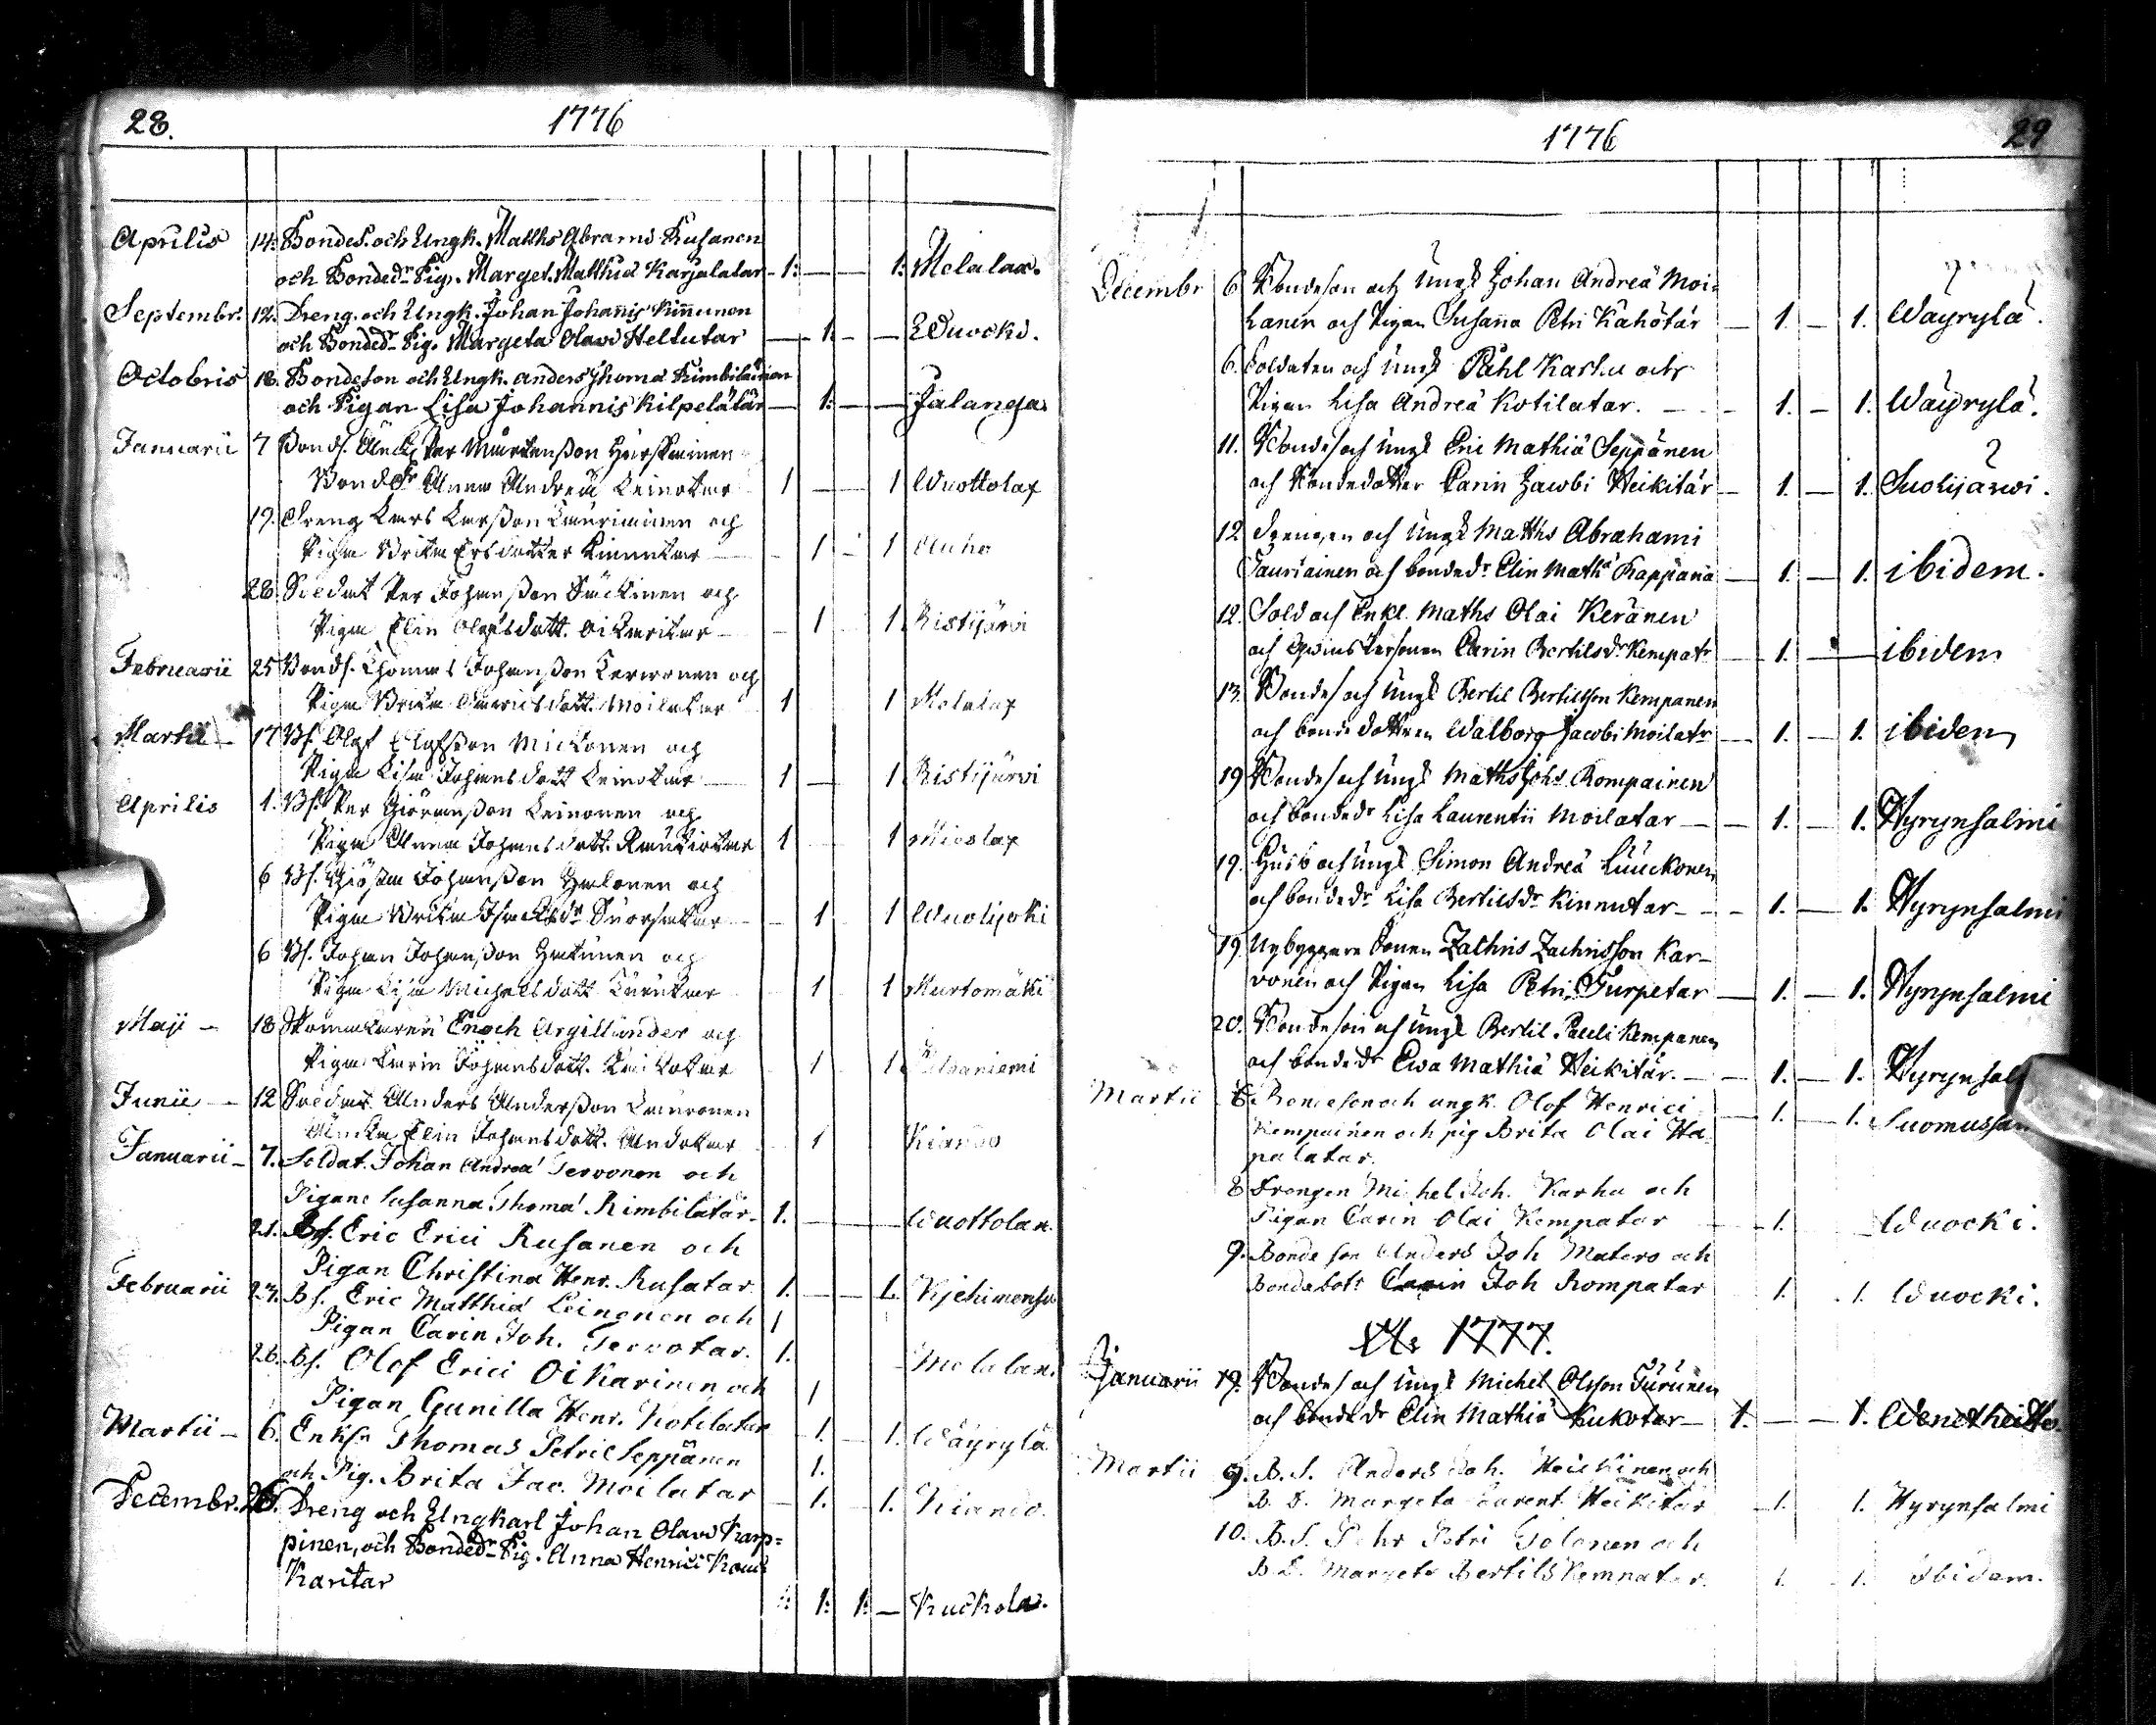 28.
1776
Aprilis 14. Bondes. och Ungk. Matths Abrams Rusanen
och Bondedr Pig. Marget. Matthiæ Karjalatar - 1: — — 1: Melalax.
Septembr. 12. Dreng. och Ungk. Johan Johannis Kinnunen
och Bonded- Pig. Margeta Olavi Heltutar — 1. — — Wuocki.
Octobris 18. Bondeson och Ungk. Anders Thomæ Kimbilainen
och Pigan Lisa Johannis Kilpelätär — 1: — — Jalanga.
Januarii 7 Bonds. Per Mårtensson
Bondedr Anna Andreæ Leinotar 1 — 1 Wuottolax
19. Dreng Lars Larsson Lauriainen och
Pigan Brita Ersdotter Kinnutar — 1 — 1 Auho
28. Soldat Per Johansson Säckinen och
Pigan Elin Olofsdott. Oikaritar — 1 1. Ristijärvi
Februarii 25 Bonds. Thomas Johansson Tervonen och
Pigan Brita Samuelsdott. Moilatar 1 1 Melalax
Martii — 17 Bs. Olof Olofsson Mickonen och
Pigan Lisa Johansdott Leinotar — 1 — 1 Ristijärvi
Aprilis 1. Bs. Per Giöransson Leinonen och
Pigan Anna Johansdott. Rautiotar 1 1 Mieslax
6 Bs. Giösta Johansson Halonen och
Pigan Brita Isacksdr Suorsatar — 1 1 Wuolijoki
6 Bs. Johan Johansson Hatunen och
Pigan Lisa Michelsdott. Turutar 1 1 Murtomäki
Maji — 18 Enoch Argillander och
Pigan Carin Johansdott. 1 1
Junii — 12 Soldat Anders Andersson Lauronen
Änkan Elin Johansdott. 1 Kiando
Januarii — 7. Soldat. Johan Andreæ Tervonen och
Pigan Susanna Thomæ Kimbilatär. 1. — — Wuottolax.
21. Bs. Eric Erici Rusanen och
Pigan Christina Henr. Rusatar 1. — — 1. Kjehimens.
Februarii 23. Bs. Eric Matthiæ Leinonen och 1
Pigan Carin Joh. Tervotar. 1. Melalax.
26. Bs. Olof Erici Oikarinen och 1
Pigan Gunilla Henr. Kotilatar 1. — 1. Wäyrylä
Martii — 6. Enks. Thomas Petri Seppänen 1.
och Pig. Brita Jac. Moilatar — 1. — 1. Kiando.
Decembr. 26. Dreng och Ungkarl Johan Olavi Karp=
pinen, och Bonded- Pig. Anna Henrici
Karitar
1: 1: — Kuckola.
1776
29
Decembr 6 Bondeson och Ungk Johan Andreæ Moi=
lanen och Pigan Susanna Petri Kähötär — 1. — 1. Wäyrylä.
6. Soldaten och Ungk Påhl Karhu och
Pigan Lisa Andreæ Kotilatar. — — 1. — 1. Wäyrylä.
11. Bondes och Ungk Eric Mathiæ Seppänen
och Bondedotter Carin Jacobi Heikitär — 1. — 1. Suolijärwi.
12 Drengen och Ungk Maths Abrahami
Tauriainen och bondedr Elin Math — 1. — 1. ibidem.
12. Sold och Enkl. Maths Olai Keränen
och Carin Bertilsdr Kempatr — 1. — — ibidem
13. Bondes och Ungk Bertil Bertilsson Kempanen
och bondedottren Walborg Jacobi Moilatr — 1. — 1. ibidem
19 Bondes och Ungk Maths Johs Kompainen
och bondedr Lisa Laurentii Moilatar — — 1. — 1. Hyrynsalmi
19. Husb och Ungk Simon Andreæ Luuckonen
och bondedr Lisa Bertilsdr Kinnutar — — 1. — 1. Hyrynsalmi
19. Nybyggare Sonen Zachris Zachrisson Kar-
vonen och Pigan Lisa Petri Turpetar — 1. — 1. Hyrynsalmi
20. Bondeson och Ungk Bertil Pauli Kempanen
och bondedr Ewa Mathiæ Heikitär. — — 1. — 1. Hyrynsal
Martii 6. Bondeson och ungk. Olof Henrici — 1. — 1. Suomussal
Kempainen och pig Brita Olai Ha-
palatar.
8 Drengen Michel Joh. Karhu och
Pigan Carin Olai Kempatar — 1. — Wuocki.
9. Bondeson Anders Joh Matero och
Bondedott Carin Joh Kompatar 1. . 1. Wuocki.
1777.
Januarii 19. Bondes och Ungk Michel Olsson Turunen
och bondedr Elin Mathiæ Kukotar — 1. — — 1. Wenetheitto.
Martii 9. B. S. Anders Joh. Heickinen och
B. D. Margeta Laurent Heikitar — 1. 1. Hyrynsalmi
10. B. S. Pehr Petri Tolonen och
B. D. Margeta Bertils Kemnatar. 1. . 1. Ibidem.